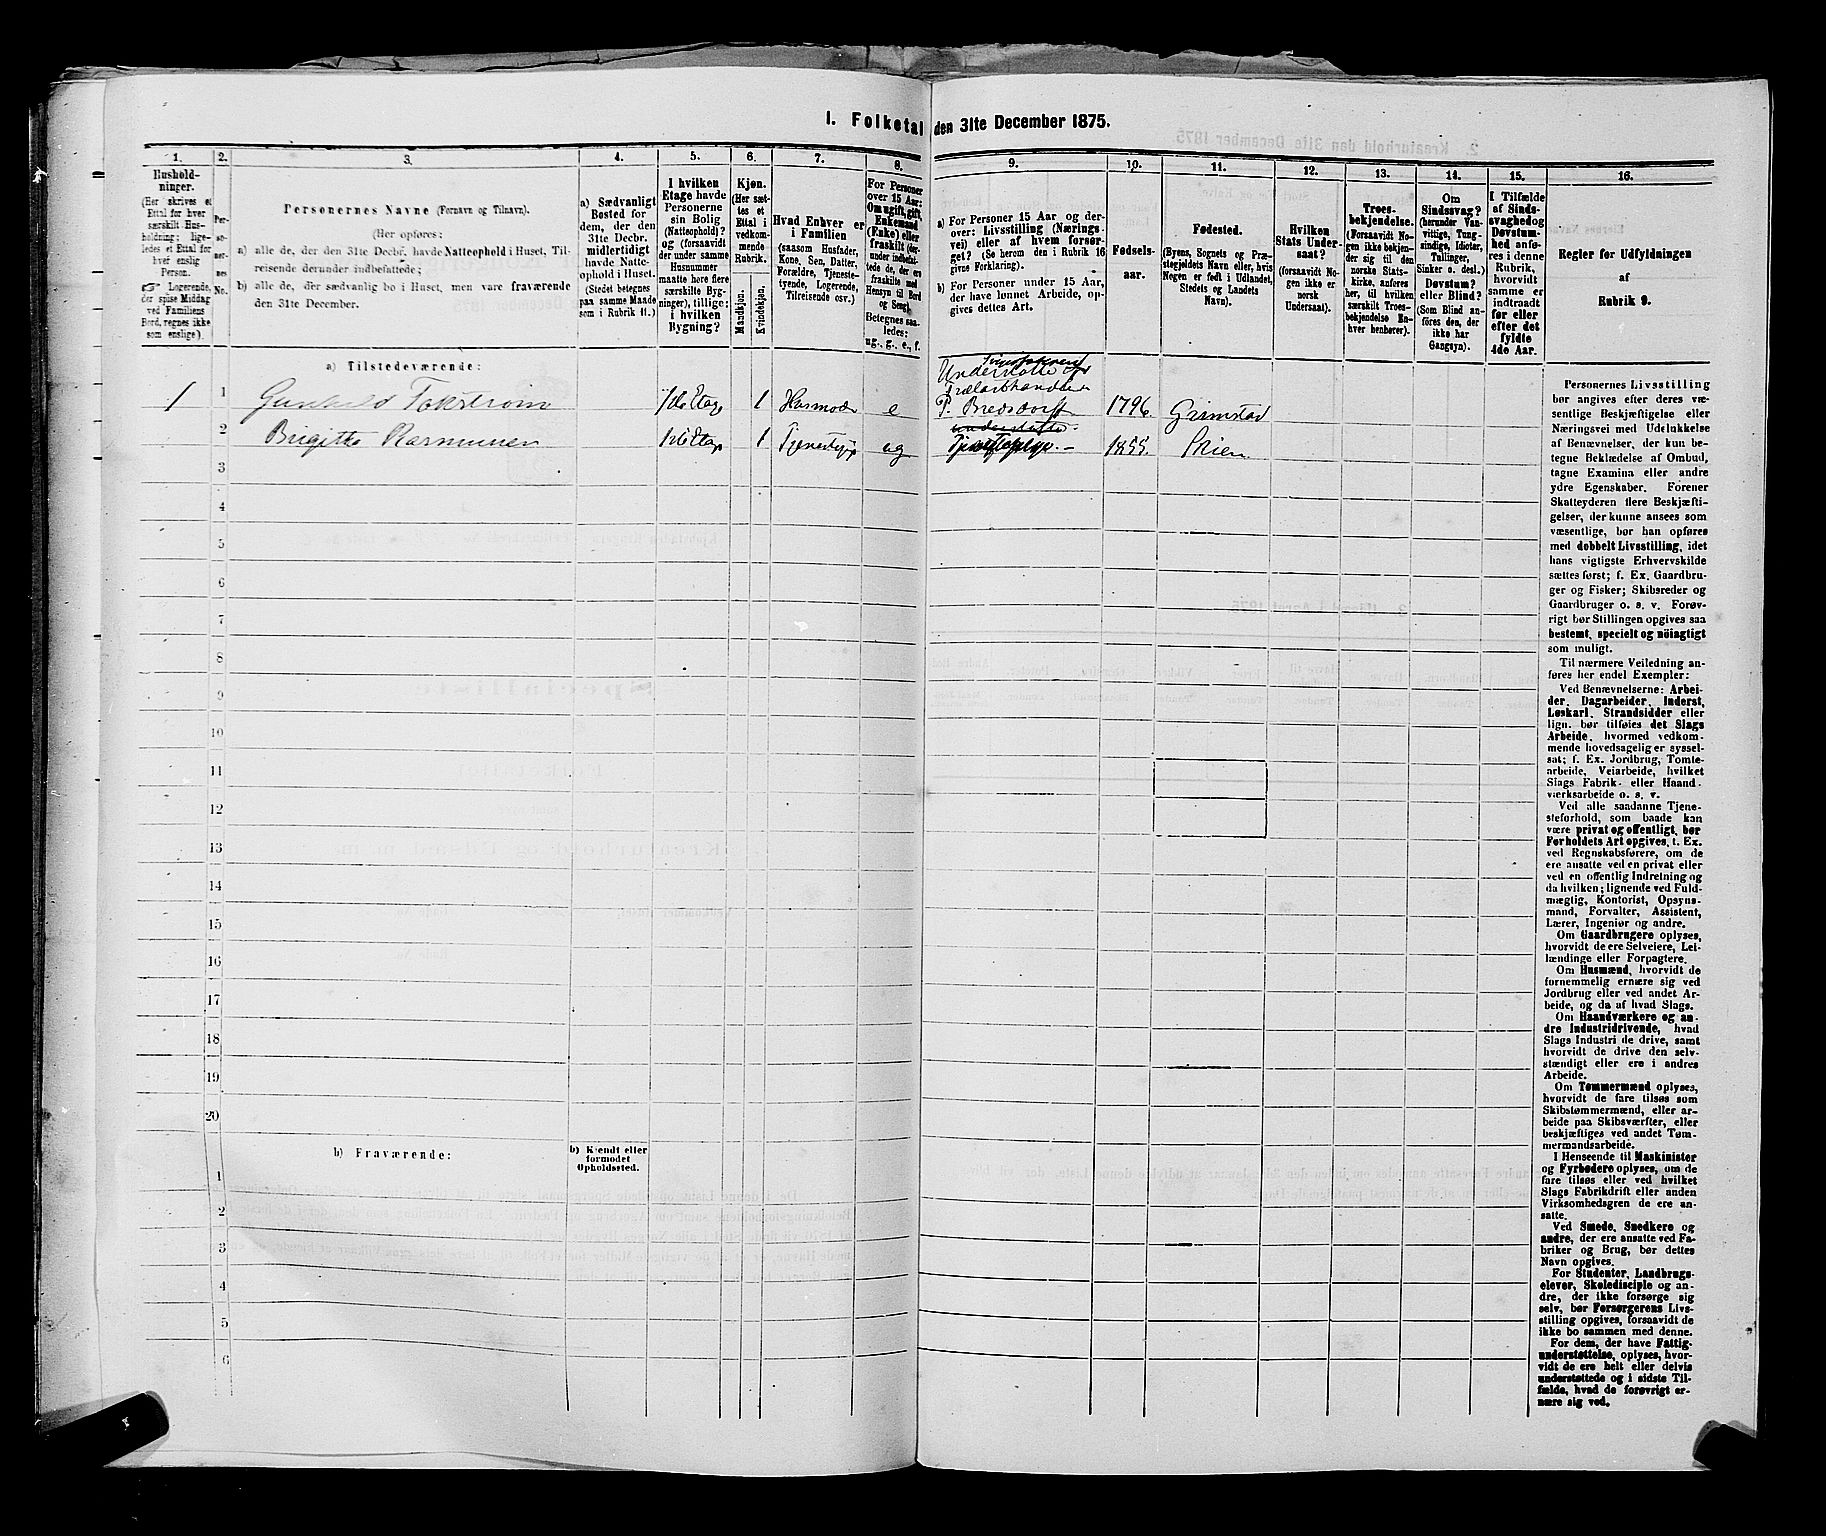 I. Folketal den 31te December 1875.
1. 2. 3. 4. 5. 6. 7. 8. 9. 10. 11. 12. 13. 14. 15. 16.
Husholdninger.
(Her skrives et
Ettal for hver
særskilt Husholdning;
ligeledes et Ettal for
hver enslig
Person.
Logerende,
der spise Middag
ved Familiens
Bord, regnes ikke
som enslige).
Personernes No.
Personernes Navne (Fornavn og Tilnavn).
(Her opføres:
a) alle de, der den 31te Decbr. havde Natteophold i Huset, Tilreisende
derunder indbefattede;
b) alle de, der sædvanlig bo i Huset, men vare fraværende
den 31te December.
a) Sædvanligt
Bosted for
dem, der den
31te Decbr.
midlertidigt
havde Natteophold
i Huset.
(Stedet betegnes
paa samme Maade
som i Rubrik 11.)
I hvilken
Etage havde
Personerne
sin Bolig
(Natteophold)?
og (forsaavidt
der under samme
Husnummer
maatte høre flere
særskilte Bygninger),
tillige:
i hvilken
Bygning?
Kjøn.
(Her sættes
et
Ettal i
vedkommende
Rubrik.
Mandkjøn.
Kvindekjøn.
Hvad Enhver er
i Familien
(saasom Husfader,
Kone, Søn, Datter,
Forældre, Tjenestetyende,
Logerende,
Tilreisende osv.)
For Personer
over 15 Aar:
Om ugift, gift,
Enkemand
(Enke) eller
fraskilt (derunder
indbefattede
de, der ere
fraskilte med
Hensyn til Bord
og Seng).
Betegnes saaledes:
ug., g., e., f.
a) For Personer 15 Aar og derover:
Livsstilling (Næringsvei)
eller af hvem forsørget?
(Se herom den i Rubrik 16
givne Forklaring).
b) For Personer under 15 Aar,
der have lønnet Arbeide, opgives
dettes Art.
Fødselsaar.
Fødested.
(Byens, Sognets og Præstegjeldets
Navn eller, hvis
Nogen er født i Udlandet,
Stedets og Landets
Navn).
Hvilken
Stats Undersaat?
(forsaavidt Nogen
ikke er
norsk
Undersaat).
Troesbekjendelse.
(Forsaavidt Nogen
ikke bekjender
sig til den
norske Statskirke,
anføres
her, til hvilken
særskilt Troesbekjendelse
Enhver
henhører).
Om
Sindssvag?
(herunder Vanvittige,
Tungsindige,
Idioter,
Tullinger,
Sinker o. desl.)
Døvstum?
eller Blind?
(Som Blind anføres
den, der
ikke har
Gangsyn).
I Tilfælde
af Sindssvaghed
og
Døvstumhed
anføres
i denne
Rubrik,
hvorvidt
samme er
indtraadt
før eller
efter det
fyldte
4de Aar.
Regler for Udfyldningen
af
Rubrik 9.
a) Tilstedeværende:
Understøttet af
Trælasthandler
1 1 Gunhild Tokstrøm 1ste Etage 1 Husmoder e P. Bredsdorff 1796. Grimstad
2 Brigitte Rasmussen 1ste Etage 1 Tjenestepige ug Tjenestepige. 1855. Skien
3
4
5
6
7
8
9
10
11
12
13
14
15
16
17
18
19
20
b) Fraværende:
b) Kjendt eller
formodet
Opholdssted.
1
2
3
4
5
6
Personernes Livsstilling
bør angives efter deres væsentlige
Beskjæftigelse eller
Næringsvei med Udelukkelse
af Benævnelser, der kun betegne
Beklædelse af Ombud,
tagne Examina eller andre
ydre Egenskaber. Forener
Skatteyderen flere Beskjæftigelser,
der kunne ansees som
væsentlige, bør han opføres
med dobbelt Livsstilling, idet
hans vigtigste Erhvervskilde
sættes først; f. Ex. Gaardbruger
og Fisker; Skibsreder og
Gaardbruger o. s. v. Forøvrigt
bør Stillingen opgives saa
bestemt, specielt og nöiagtigt
som muligt.
Til nærmere Veiledning anføres
her endel Exempler:
Ved Benævnelserne: Arbeider,
Dagarbeider, Inderst,
Løskarl, Strandsidder eller
lign. bør tilføies det Slags
Arbeide, hvormed vedkommende
hovedsagelig er sysselsat;
f. Ex. Jordbrug, Tomtearbeide,
Veiarbeide, hvilket
Slags Fabrik- eller Haandværksarbeide
o. s. v.
Ved alle saadanne Tjenesteforhold,
som baade kan
være privat og offentligt, bør
Forholdets Art opgives, f. Ex.
ved Regnskabsførere, om de
ere ansatte ved en privat eller
ved en offentlig Indretning og
da hvilken; lignende ved Fuldmægtig,
Kontorist, Opsynsmand,
Forvalter, Assistent,
Lærer, Ingeniør og andre.
Om Gaardbrugere oplyses,
hvorvidt de ere Selveiere, Leilændinge
eller Forpagtere.
Om Husmænd, hvorvidt de
fornemmelig ernære sig ved
Jordbrug eller ved andet Arbeide,
og da af hvad Slags.
Om Haandværkere og andre
Industridrivende, hvad
Slags Industri de drive, samt
hvorvidt de drive den selvstændigt
eller ere i andres
Arbeide.
Om Tømmermænd oplyses,
hvorvidt de fare tilsøs som
Skibstømmermænd, eller arbeide
paa Skibsværfter, eller
beskjæftiges ved andet Tømmermandsarbeide.
I Henseende til Maskinister
og Fyrbødere oplyses, om de
fare tilsøs eller ved hvilket
Slags Fabrikdrift eller anden
Virksomhedsgren de ere ansatte.
Ved Smede, Snedkere og
andre, der ere ansatte ved Fabriker
og Brug, bør dettes
Navn opgives.
For Studenter, Landbrugselever,
Skoledisciple og andre,
der ikke forsørge sig
selv, bør Forsørgerens Livsstilling
opgives, forsaavidt de
ikke bo sammen med denne.
For dem, der have Fattigunderstøttelse,
oplyses, hvorvidt
de ere helt eller delvis
understøttede og i sidste Tilfælde,
hvad de forøvrigt ernære
sig ved.